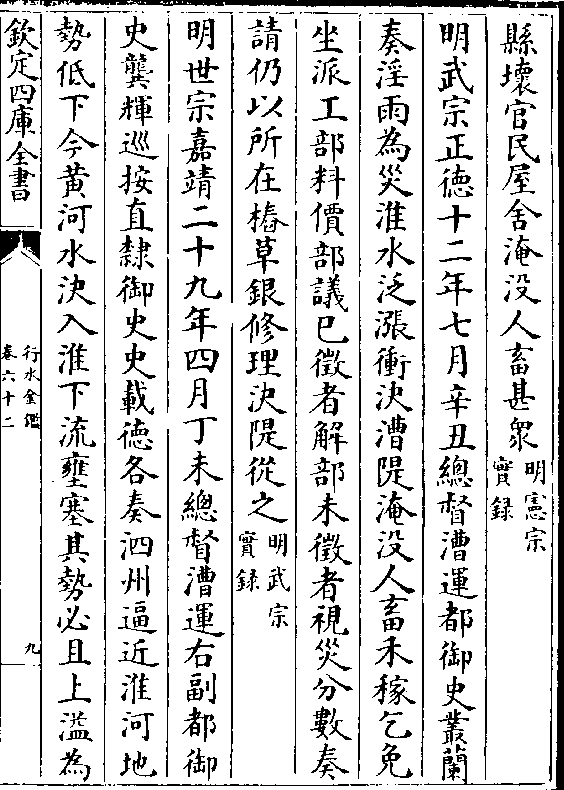 縣壞官民屋舍淹没人畜甚衆明憲宗實録
明武宗正德十二年七月辛丑總督漕運都御史叢蘭
奏淫雨為災淮水泛漲衝決漕隄淹没人畜禾稼乞免
坐派工部料價部議已徵者解部未徵者視災分數奏
請仍以所在樁草銀修理決隄從之明武宗實録
明世宗嘉靖二十九年四月丁未總督漕運右副都御
史龔輝巡按直隸御史史載德各奏泗州逼近淮河地
勢低下今黄河水決入淮下流壅塞其勢必且上溢為
欽定四庫全書
行水金鑑
卷六十二
九